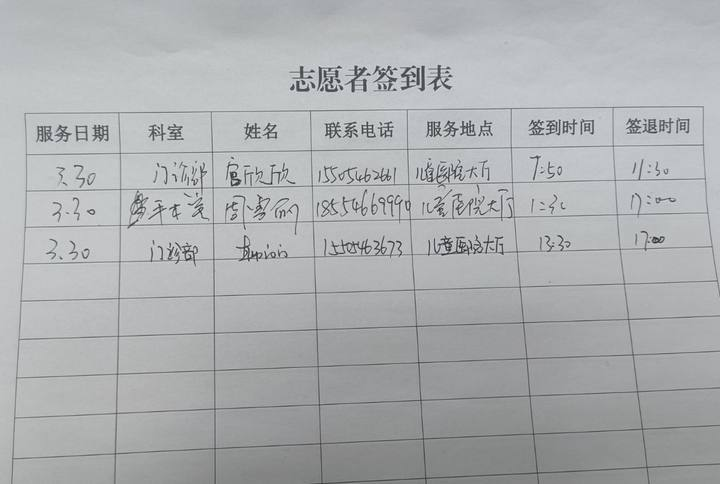 志愿者签到表
服务日期 科室 姓名 联系电话 服务地点 签到时间 签退时间
3.30 门诊部 宫欣欣 15505462661 儿童医院大厅 7:50 11:30
3.30 18554669990 儿童医院大厅 1:30 17:00
3.30 门诊部 15505463673 儿童医院大厅 13:30 17:00